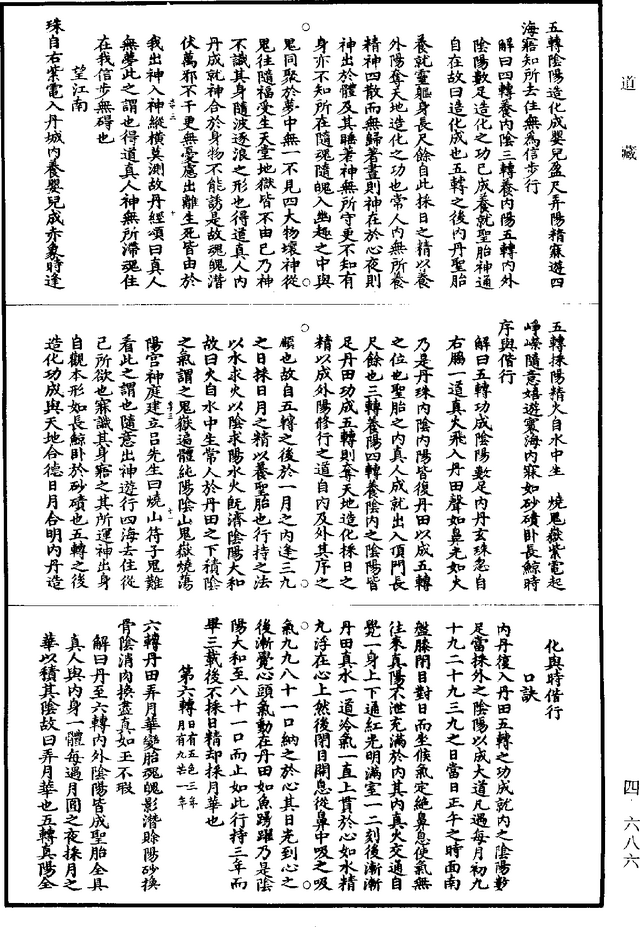 道藏
五轉陰陽造化成嬰兒盈尺弄陽精寐遊四
海寤知所去住無為信步行
解曰四轉養內陰三轉養內陽五轉內外
陰陽數足造化之功已成養就聖胎神通
自在故曰造化成也五轉之後內丹聖胎
養就靈軀身長尺餘自此採日之精以養
外陽奪天地造化之功也常人內無所養
精神四散而無歸著晝則神在於心夜則
神出於體及其睡著神無所守更不知有
身亦不知所在隨魂隨魄入幽趣之中與
鬼同聚於夢中無一不見四大物壞神從
鬼往隨福受生天堂地獄皆不由己乃神
不識其身隨波逐浪之形也得道真人內
丹成就神合於身物不能誘是故魂魄潛
伏萬邪不干更無憂慮出離生死皆由於
我出神入神縱橫莫測故丹經頌曰真人
無夢此之謂也得道真人神無所滯魂住
在我信步無礙也
望江南
珠自右紫電入丹城內養嬰兒成赤象時逢
五轉採陽精火自水中生　燒鬼嶽紫電起
崢嶸隨意嬉遊寰海內寐如砂磧卧長鯨時
序與偕行
解曰五轉功成陰陽數足內丹玄珠忽自
右腸一道真火飛入丹田聲如鼻光如火
乃是丹珠內陰內陽皆復丹田以成五轉
之位也聖胎之內真人成就出入頂門長
尺餘也三轉養陽四轉養陰內之陰陽皆
足丹田功成五轉則奪天地造化採日之
精以成外陽修行之道自內及外其序之
順也故自五轉之後於一月之內逢三九
之日採日月之精以養聖胎也行持之法
以水求火以陰求陽水火既濟陰陽大和
故曰火自水中生常人於丹田之下積陰
之氣謂之鬼嶽遍體純陽陰山鬼嶽燒蕩
陽宮神庭建立呂先生曰燒山符子鬼難
看此之謂也隨意出神遊行四海去住從
己所欲也寐識其身寤之其所運神出身
自觀本形如長鯨卧於砂磧也五轉之後
造化功成與天地合德日月合明內丹造
化與時偕行
口訣
內丹復入丹田五轉之功成就內之陰陽數
足當採外之陰陽以成大道凡遇每月初九
十九二十九三九之日當日正午之時面南
盤膝閉目對日而坐候氣定絕鼻息使氣無
往來真陽不泄充滿於內其內真火交通自
覺一身上下通紅光明滿室一二刻後漸漸
丹田真水一道冷氣一直上貫於心如水精
丸浮在心上然後閉目開息從鼻中吸之吸
氣九九八十一口納之於心其日光到心之
後漸覺心頭氣動在丹田如魚踴躍乃是陰
陽大和至八十一口而止如此行持三年而
畢三載後不採日精却採月華也
第六轉日有五色三年月有九芒一年
六轉丹田弄月華變胎魂魄影潛賒陽砂換
骨陰消肉換盡真如玉不瑕
解曰丹至六轉內外陰陽皆成聖胎全具
真人與內身一體每遇月圓之夜採月之
華以積其陰故曰弄月華也五轉真陽全
四·六八六